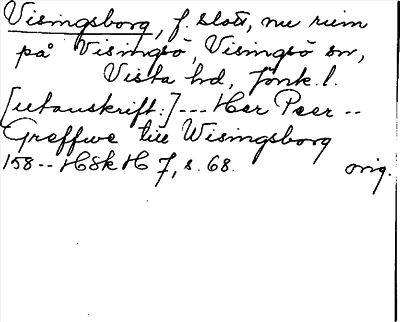 Visingsborg, f. slott, nu ruin
på Visingsö, Visingsö sn,
Vista hd, Jönk. l.
[utanskrift:] --- Her Peer --
Greffwe till Wisingsborg
158-- HSkH 7, s. 68. orig.